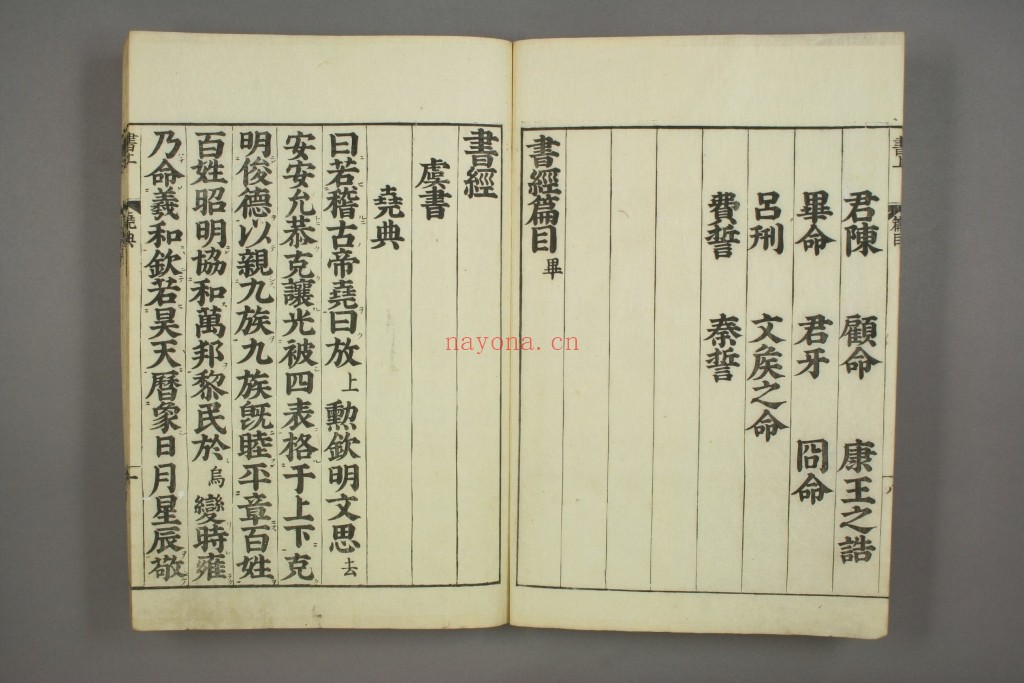 君陳 顧命 康王之誥
畢命 君牙 冏命
呂刑 文侯之命
費誓 秦誓
書經篇目畢
書經
虞書
堯典
曰若稽古帝堯曰放上勳欽明文思去
安安允恭克讓光被四表格于上下克
明俊德以親九族九族旣睦平章百姓
百姓昭明協和萬邦黎民於烏變時雍
乃命羲和欽若昊天曆象日月星辰敬
書上 堯典
nayona.cn